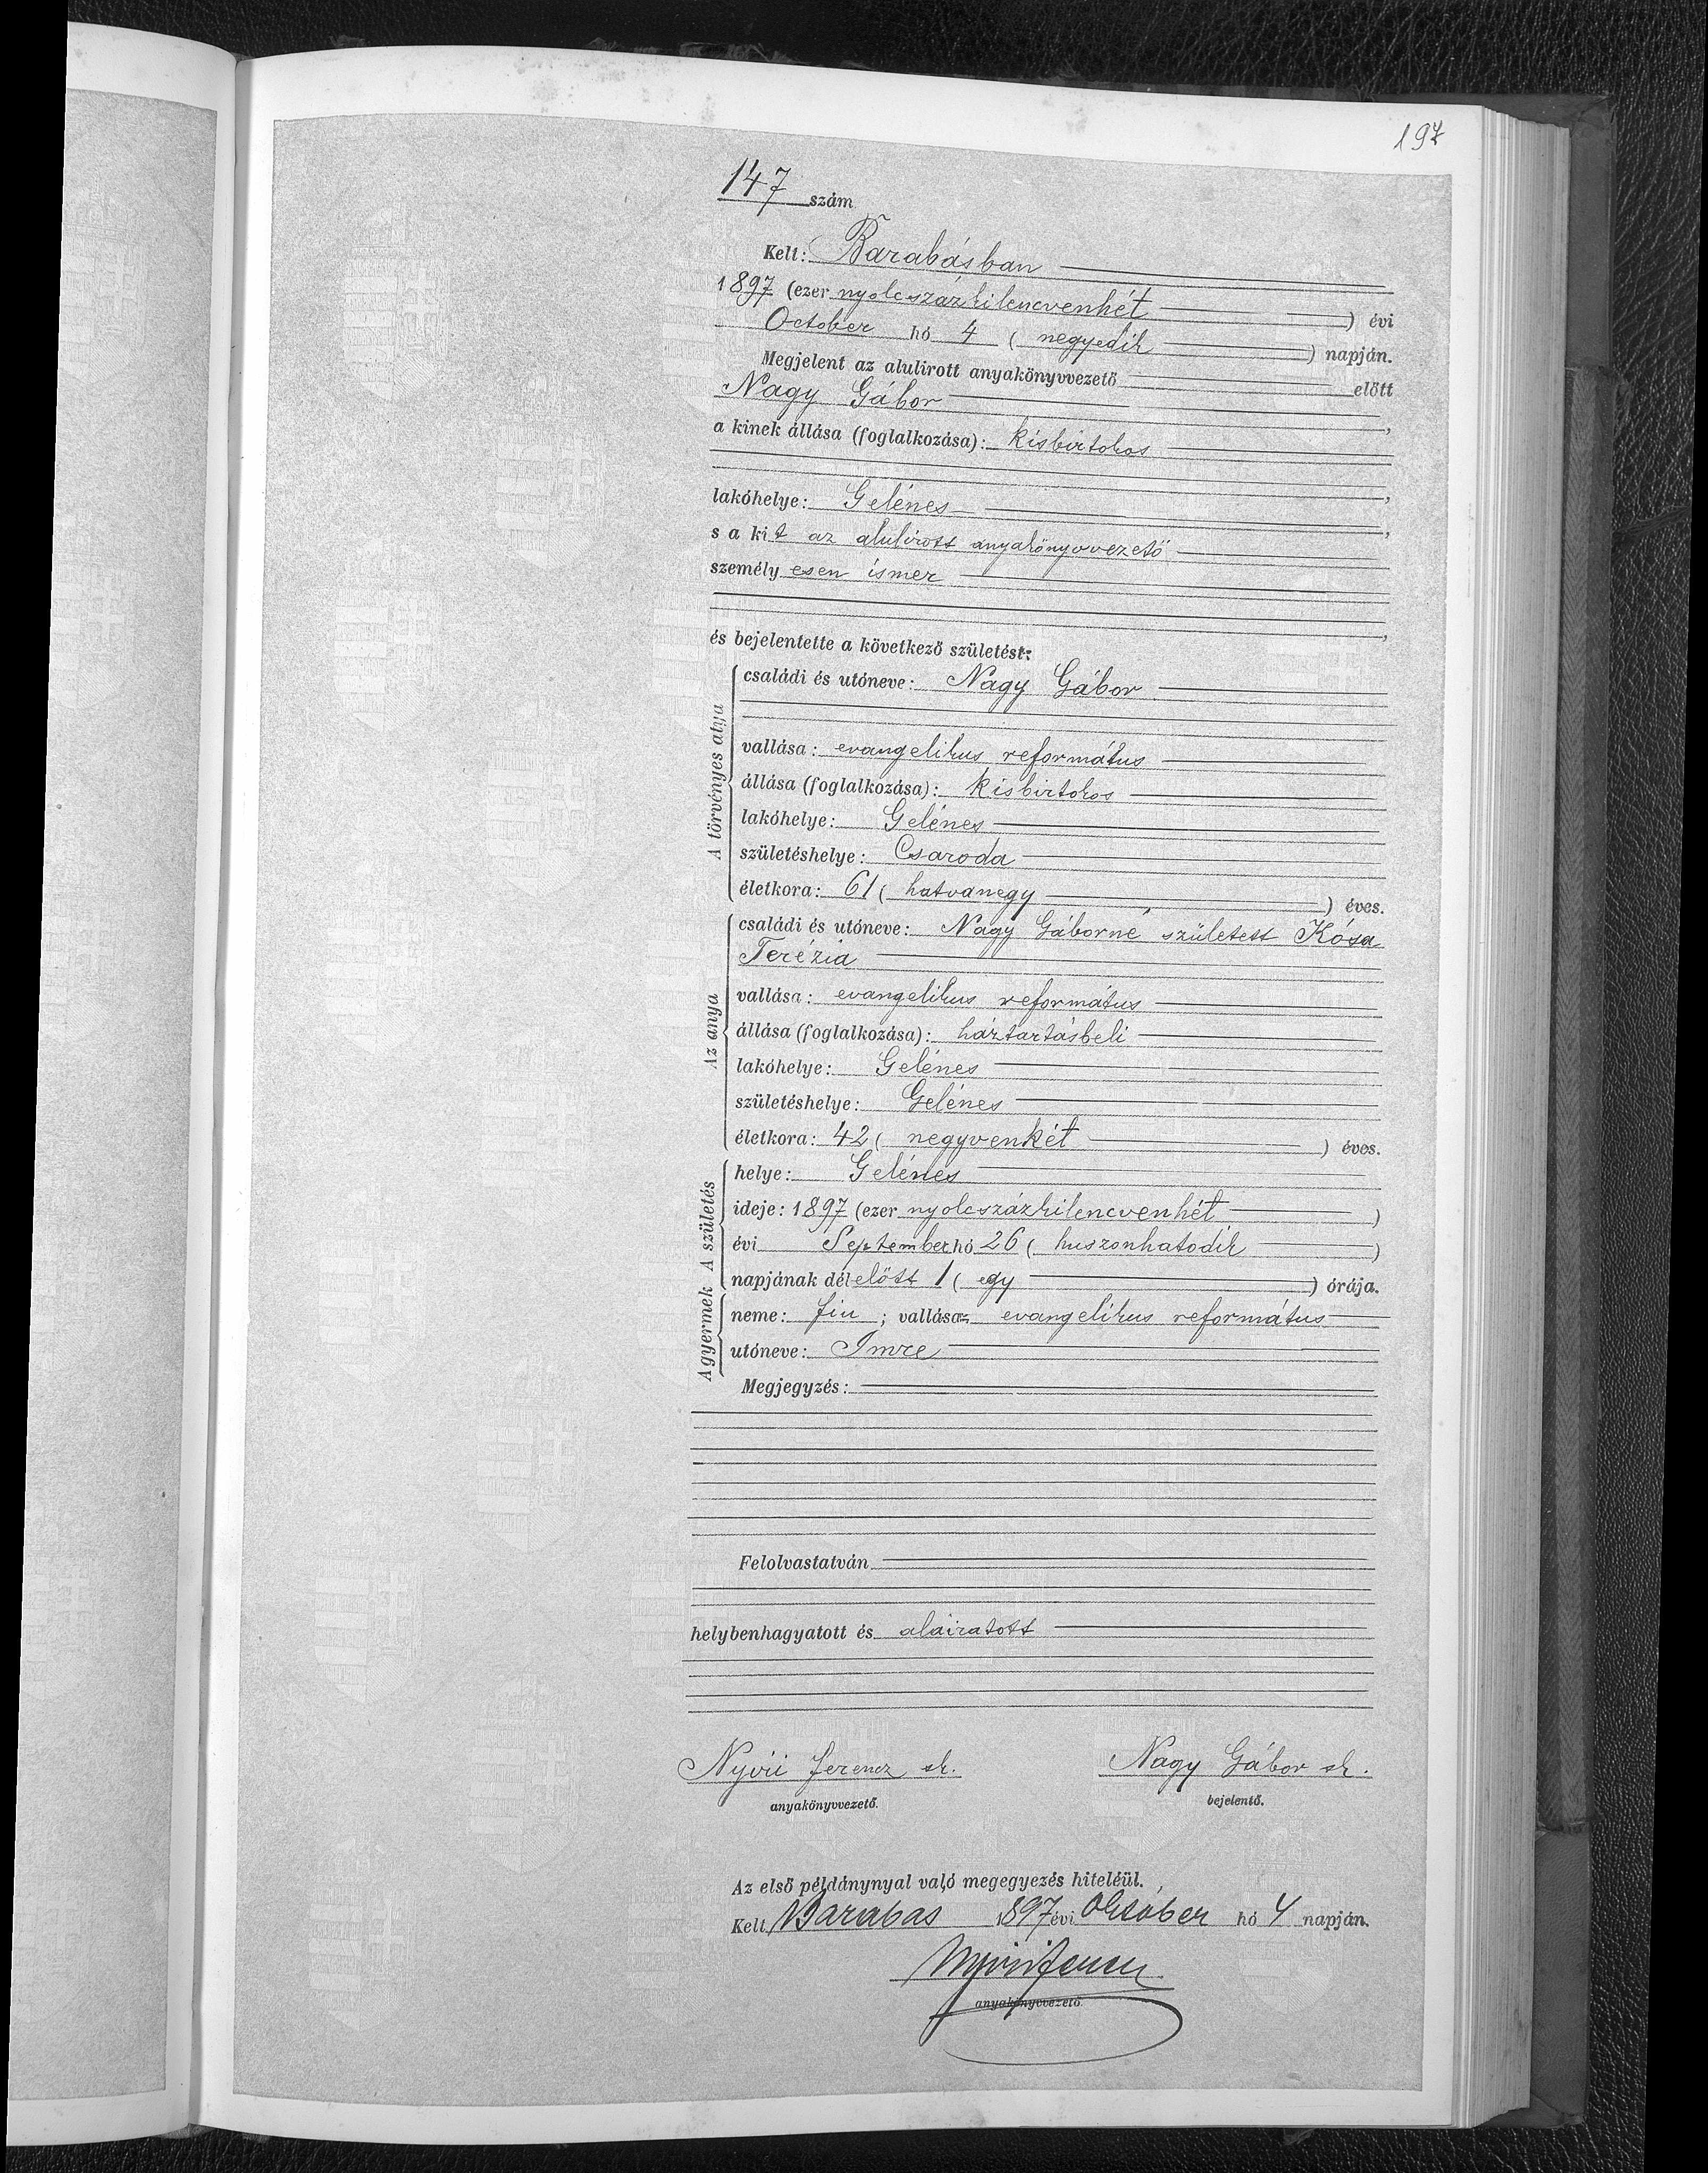 197
147 szám
Kelt: Barabásban
1897 (ezer nyolcszázkilencvenhét) évi
October hó 4 (negyedik) napján.
Megjelent az alulirott anyakönyvvezető előtt
Nagy Gábor,
a kinek állása (foglalkozása): kisbirtokos
,
lakóhelye: Gelénes,
s a kit az alulirott anyakönyvvezető
személyesen ismer
,
és bejelentette a következő születést:
A törvényes atya
családi és utóneve: Nagy Gábor
vallása: evangelikus református
állása (foglalkozása): kisbirtokos
lakóhelye: Gelénes
születéshelye: Csaroda
életkora: 61 (hatvanegy) éves.
Az anya
családi és utóneve: Nagy Gáborné született Kósa
Terézia
vallása: evangelikus református
állása (foglalkozása): háztartásbeli
lakóhelye: Gelénes
születéshelye: Gelénes
életkora: 42 (negyvenkét) éves.
A születés
helye: Gelénes
ideje: 1897 (ezer nyolcszázkilencvenhét)
évi September hó 26 (huszonhatodik)
napjának délelőtt 1 (egy) órája.
A gyermek
neme: fiu; vallása: evangelikus református
utóneve: Imre
Megjegyzés:
Felolvastatván
helybenhagyatott és aláiratott
Nyíri Ferencz sk. Nagy Gábor sk.
anyakönyvvezető. bejelentő.
Az első példánynyal való megegyezés hiteléül.
Kelt Barabas 1897 évi October hó 4 napján.
Nyiri Ferencz
anyakönyvvezető